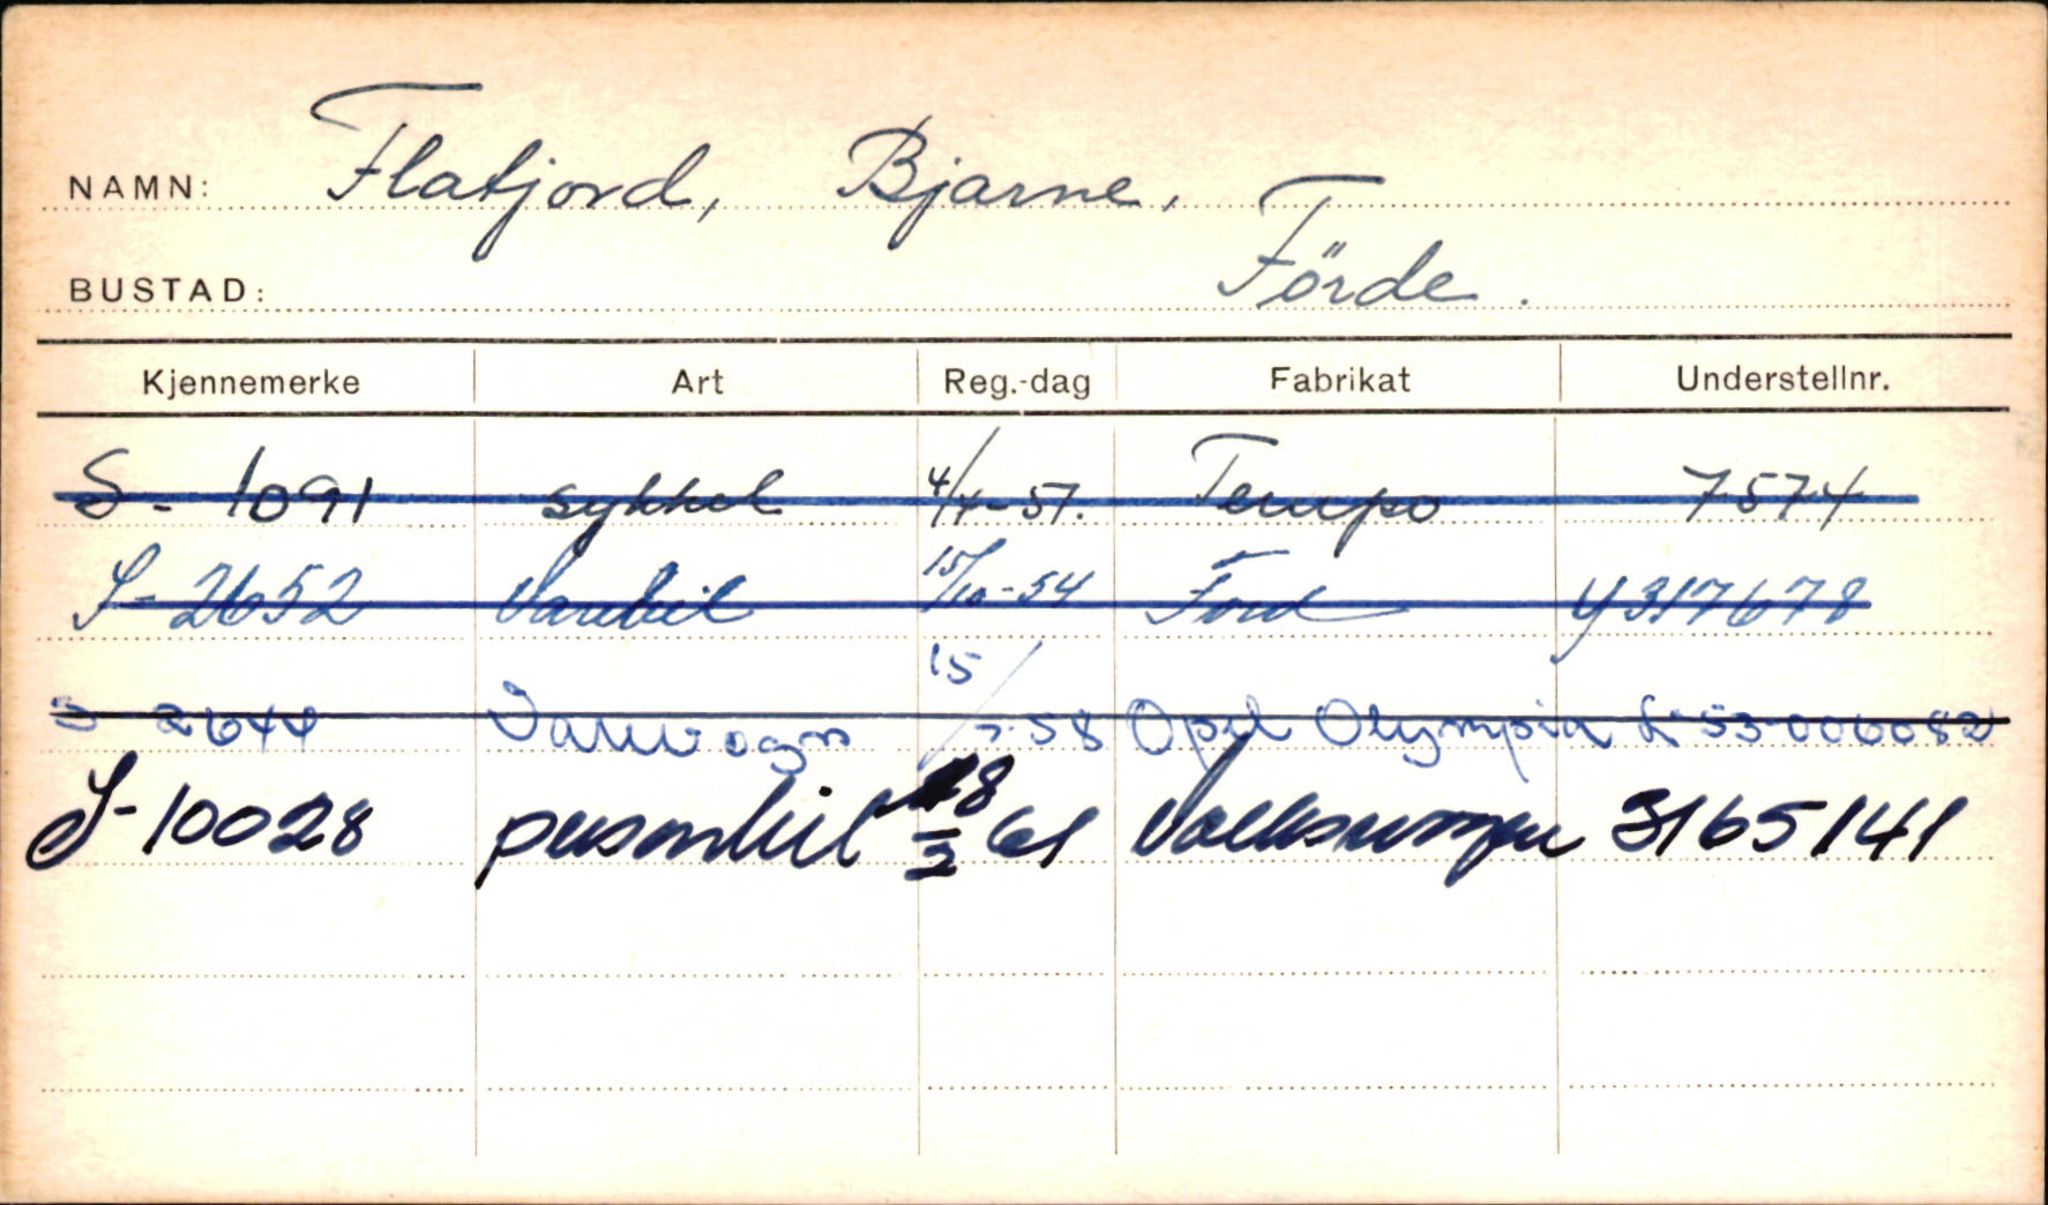 NAMN: Flatjord, Bjarne,
BUSTAD: Förde.
Kjennemerke Art Reg.-dag Fabrikat Understellnr.
S - 1091 sykkel 4/4-51. Tempo 7574
S - 2652 Varebil 15/10-54 Ford Y317678
S 2644 Varevogn 15/7.58 Opel Olympia L-53-006082
S-10028 personbil 18/2 61 Volkswagen 3165141